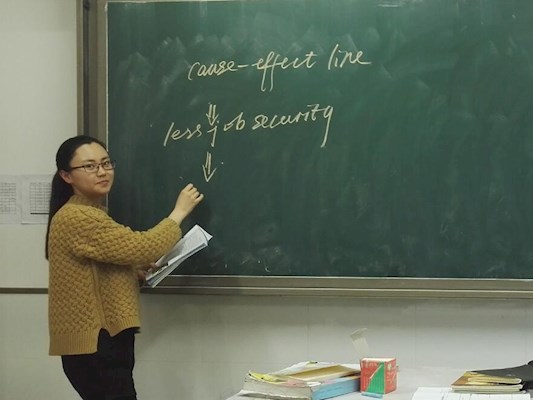 cause-effect line
less job security